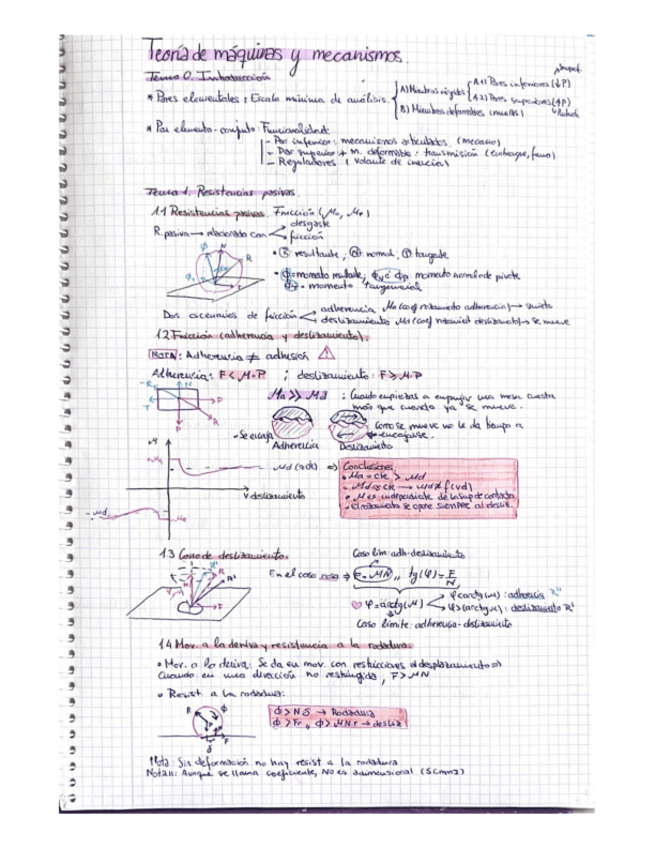 Teoría de máquinas y mecanismos.
Tema 0. Introducción
* Pares elementales: Escala mínima de análisis.
A) Miembros rígidos
A1) Pares inferiores (↓P)
A2) Pares superiores (↑P)
B) Miembros deformables (muelles)
* Par elemento-conjunto Funcionalidad:
- Par inferior: mecanismos articulados (mecano)
- Par superior + m. deformable: transmisión (embrague, freno)
- Reguladores (volante de inercia)
Tema 1. Resistencias pasivas.
1.1 Resistencias pasivas. Fricción (μa, μd)
R. pasiva → relacionado con
desgaste
fricción
• R resultante, N normal, T tangente
• ϕ = momento resultante, momento normal = de pivote
• momento tangencial
Dos escenarios de fricción
adherencia μa (coef rozamiento adherencia) → quieto
deslizamiento μd (coef rozamient deslizamiento) → se mueve
1.2 Fricción (adherencia y deslizamiento).
NOTA: Adherencia ≠ adhesión
Adherencia: F < μ·P ; deslizamiento: F ≥ μ·P
μa >> μd : Cuando empiezas a empujar una mesa cuesta
más que cuando ya se mueve.
- Se encaja
Como se mueve no le da tiempo a
encajarse.
Adherencia Deslizamiento
μd (≈cte) ⇒
V deslizamiento
Conclusiones
• μa = cte > μd
• μd ≈ cte → μd ≠ f(vd)
• μ es independiente de la sup de contacto
• El rozamiento se opone siempre al desliz.
1.3 Cono de deslizamiento.
Caso lím: adh-deslizamiento
En el caso F = μN ,, tg(φ) = F/N
φ = arctg(μ)
φ < arctg(μ) : adherencia R''
φ > arctg(μ) : deslizamiento R'
Caso límite: adherencia-deslizamiento
1.4 Mov. a la deriva y resistencia a la rodadura.
• Mov. a la deriva: Se da en mov. con restricciones al desplazamiento ⇒
Cuando en una dirección no restringida, F > μN
• Resist a la rodadura:
ϕ > Nδ → Rodadura
ϕ > Fr, ϕ > μNr → desliz
Nota: Sin deformación no hay resist a la rodadura
Nota II: Aunque se llama coeficiente, No es adimensional